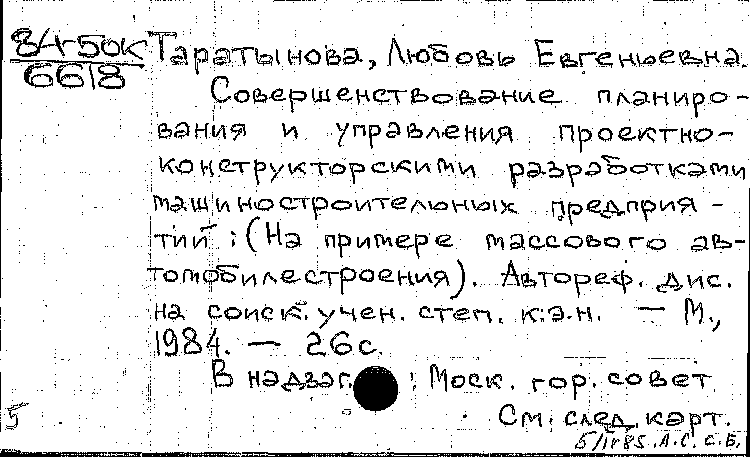 84г50к
6618
Таратынова, Любовь Евгеньевна.
Совершенствование планиро-
вания и управления проектно-
конструкторскими разработками
машиностроительных предприя-
тий : (На примере массового ав-
томобилестроения). Автореф. дис.
на соиск. учен. степ. к.э.н. — М.,
1984. — 26 с.
В надзаг. : Моск. гор. совет
См. след. карт.
5
А.С. С.Б.